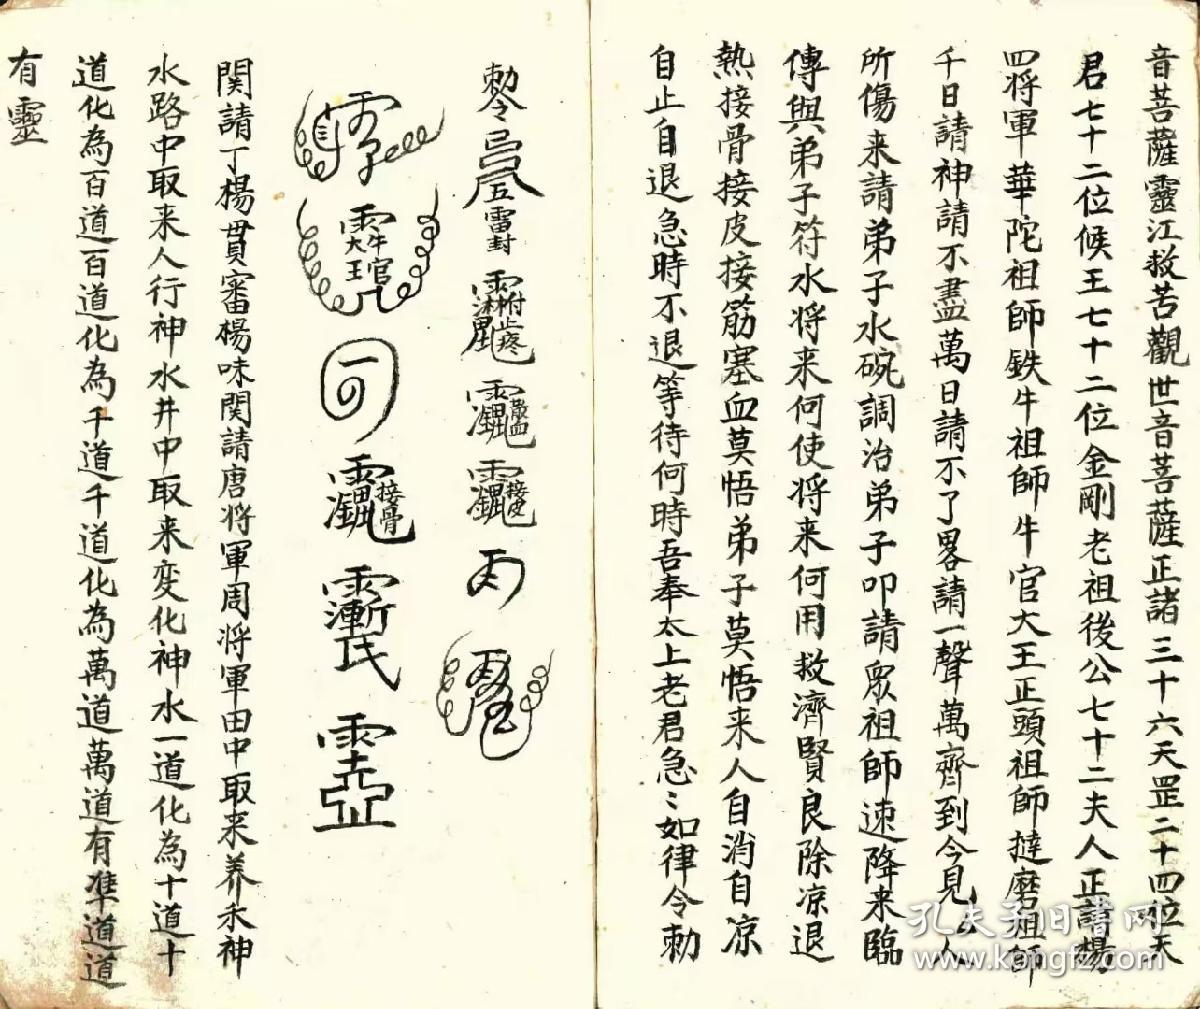 音菩薩靈江救苦觀世音菩薩正諸三十六天罡二十四位天
君七十二位候王七十二位金剛老祖後公七十二夫人正請楊
四将軍華陀祖師鉄牛祖師牛官大王正頭祖師撻磨祖師
千日請神請不盡萬日請不了畧請一聲萬齊到今見厶人
所傷来請弟子水碗調治弟子叩請眾祖師速降来臨
傳與弟子符水将来何使将来何用救濟賢良除凉退
熱接骨接皮接筋塞血莫悟弟子莫悟来人自消自凉
自止自退急時不退等待何時吾奉太上老君急〻如律令勅
勅令 雷封
附止疼
接皮
大王 牛官
接骨
関請丁楊貫審楊味関請唐将軍周将軍田中取来养禾神
水路中取来人行神水井中取来变化神水一道化為十道十
道化為百道百道化為千道千道化為萬道萬道有準道道
有靈
孔夫子旧書网
www.kongfz.com